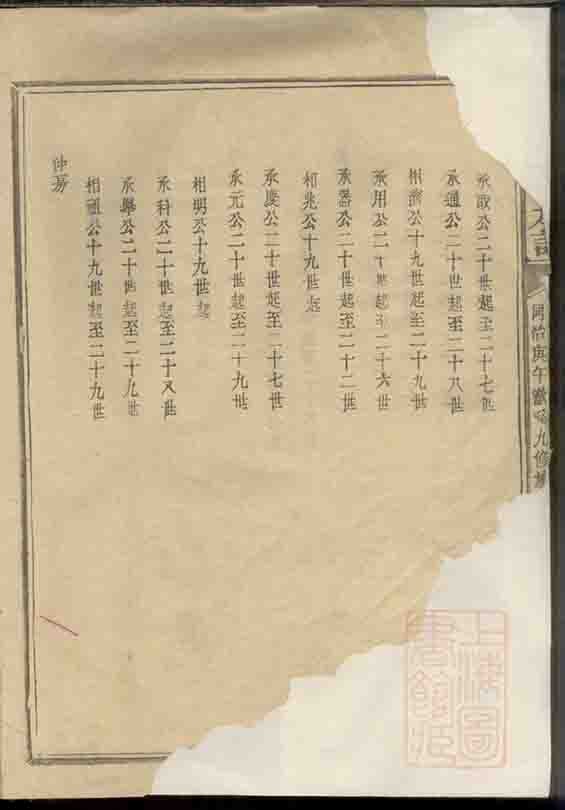 同治庚午歲 九修
承取公二十世起至二十七世
承通公二十世起至二十八世
相湾公十九世起至二十九世
承用公二十世起至二十六世
承器公二十世起至二十二世
相兆公十九世起
承慶公二十世起至二十七世
承元公二十世起至二十九世
相明公十九世起
承科公二十世起至二十八世
承舉公二十世起至二十九世
相祖公十九世起至二十九世
仲房
上海圖
書館藏